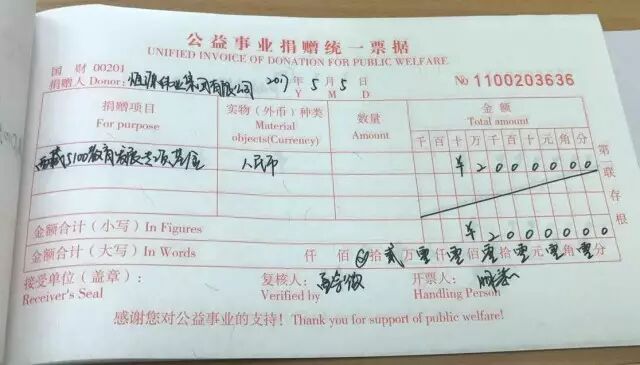 公益事业捐赠统一票据
UNIFIED INVOICE OF DONATION FOR PUBLIC WELFARE
国 财 00201
捐赠人 Donor: 恒源伟业集团有限公司 2017 年 5 月 5 日 No 1100203636
Y M D
捐赠项目 实物（外币）种类 数量 金额
For purpose Material objects(Currency) Amount Total amount
千 百 十 万 千 百 十 元 角 分
西藏5100教育发展专项基金 人民币 ¥ 2 0 0 0 0 0 0
第 联 存 根
金额合计（小写）In Figures ¥ 2 0 0 0 0 0 0
金额合计（大写）In Words 仟 佰 拾 贰 万 零 仟 零 佰 零 拾 零 元 零 角 零 分
接受单位（盖章）: 复核人: 开票人:
Receiver's Seal Verified by Handling Person
感谢您对公益事业的支持! Thank you for support of public welfare!